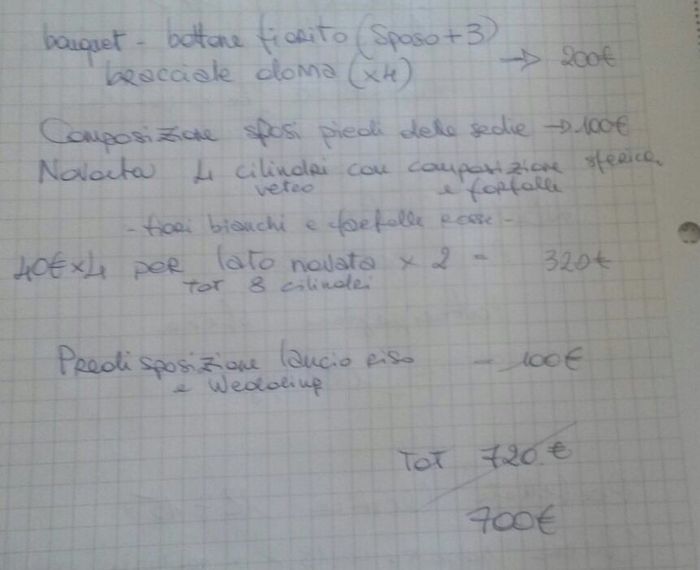 bouquet - bottone fiorito (Sposo+3)
bracciale donna (x4) → 200€
Composizione sposi piedi delle sedie → 100€
Navata 4 cilindri con composizione sferica
vetro e farfalle
- fiori bianchi e farfalle rosse -
40€x4 per lato navata x 2 = 320€
Tot 8 cilindri
Predisposizione lancio riso - 100€
e Wedding
Tot 720 €
700€